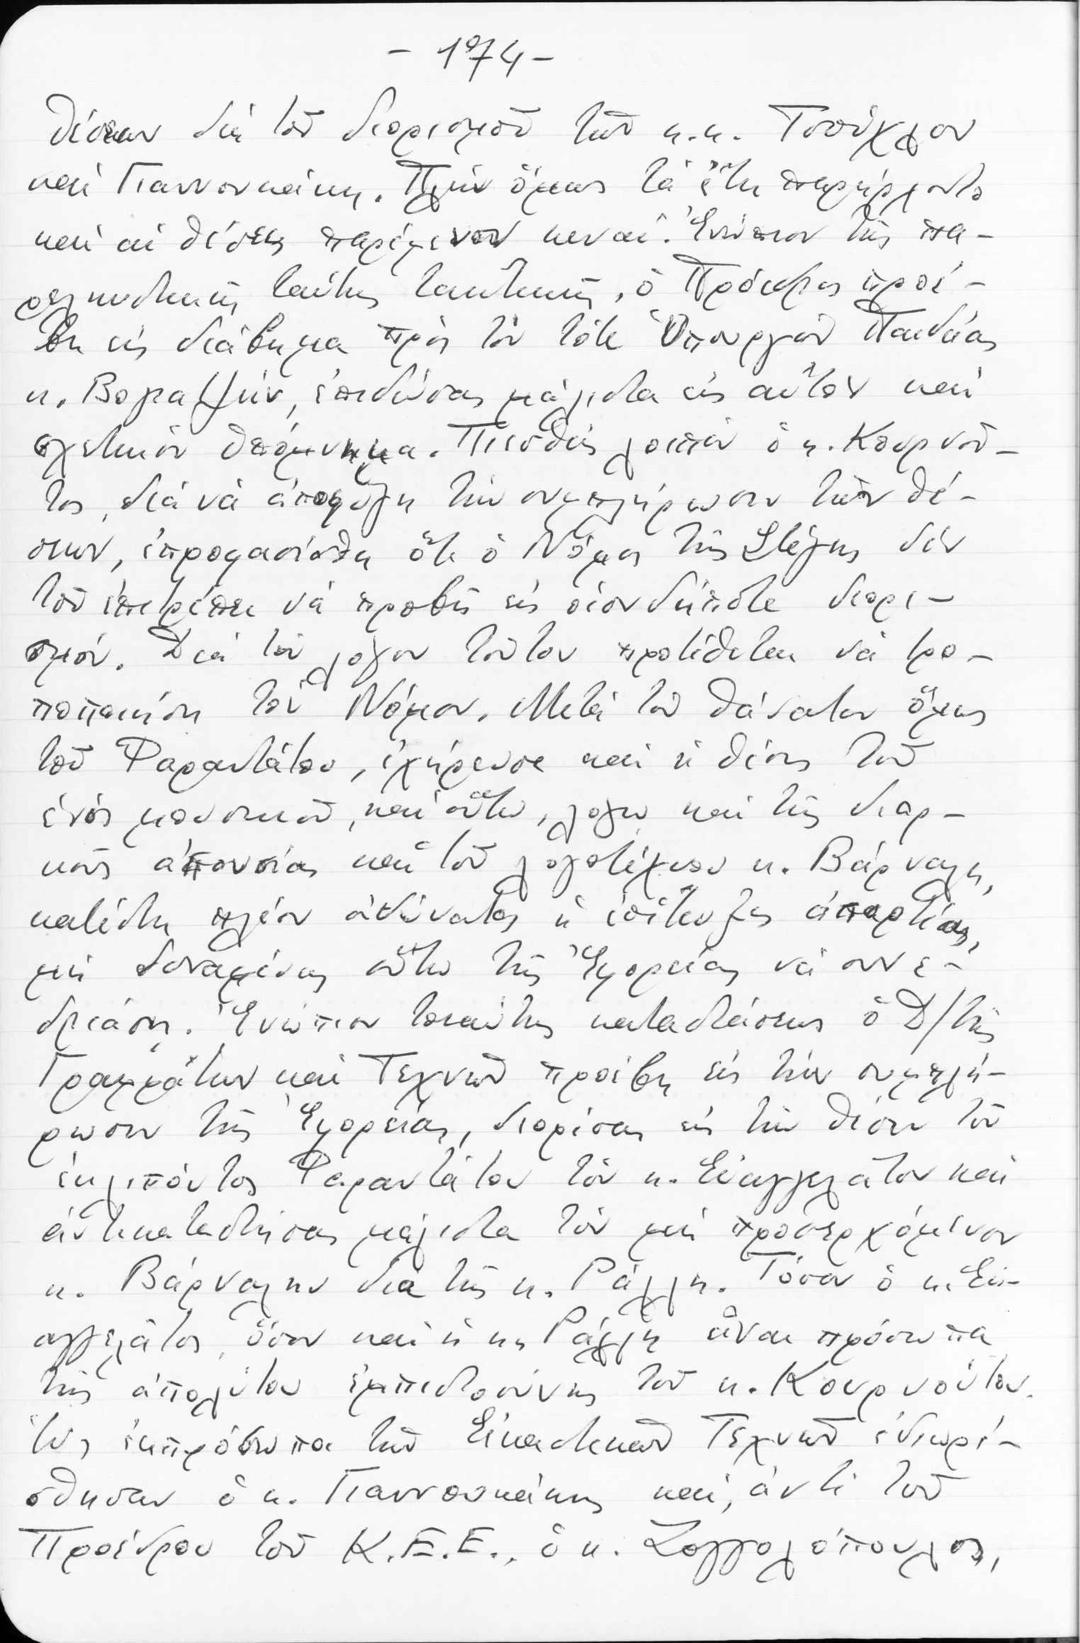 - 174 -
θέσεων διὰ τοῦ διορισμοῦ τῶν κ.κ. Τσούχλου
καὶ Γιαννουκάκη. Πλὴν ὅμως τὰ ἔτη παρήρχοντο
καὶ αἱ θέσεις παρέμενον κεναί. Ἐνώπιον τῆς πα-
ρελκυστικῆς ταύτης τακτικῆς, ὁ Πρόεδρος προέ-
βη εἰς διάβημα πρὸς τὸν τότε Ὑπουργὸν Παιδείας
κ. Βογιατζῆν, ἐπιδώσας μάλιστα εἰς αὐτὸν καὶ
σχετικὸν ὑπόμνημα. Πιεσθεὶς λοιπὸν ὁ κ. Κουρνοῦ-
τος, διὰ νὰ ἀποφύγῃ τὴν συμπλήρωσιν τῶν θέ-
σεων, ἐπροφασίσθη ὅτι ὁ Νόμος τῆς Στέγης δὲν
τοῦ ἐπιτρέπει νὰ προβῇ εἰς οἱονδήποτε διορι-
σμόν. Διὰ τὸν λόγον τοῦτον προτίθεται νὰ τρο-
ποποιήσῃ τὸν Νόμον. Μετὰ τὸν θάνατον ὅμως
τοῦ Φαραντάτου, ἐχήρευσε καὶ ἡ θέσις τοῦ
ἑνὸς μουσικοῦ, καὶ οὕτω, λόγῳ καὶ τῆς διαρ-
κοῦς ἀπουσίας καὶ τοῦ λογοτέχνου κ. Βάρναλη,
κατέστη πλέον ἀδύνατος ἡ ἐπίτευξις ἀπαρτίας,
μὴ δυναμένης οὕτω τῆς Ἐφορείας νὰ συνε-
δριάσῃ. Ἐνώπιον τοιαύτης καταστάσεως ὁ Δ/τὴς
Γραμμάτων καὶ Τεχνῶν προέβη εἰς τὴν συμπλή-
ρωσιν τῆς Ἐφορείας, διορίσας εἰς τὴν θέσιν τοῦ
ἐκλιπόντος Φαραντάτου τὸν κ. Εὐαγγελᾶτον καὶ
ἀντικαταστήσας μάλιστα τὸν μὴ προσερχόμενον
κ. Βάρναλην διὰ τῆς κ. Ράλλη. Τόσον ὁ κ. Εὐ-
αγγελᾶτος, ὅσον καὶ ἡ κη Ράλλη εἶναι πρόσωπα
τῆς ἀπολύτου ἐμπιστοσύνης τοῦ κ. Κουρνούτου.
Ὡς ἐκπρόσωπα τῶν Εἰκαστικῶν Τεχνῶν ἐδιωρί-
σθησαν ὁ κ. Γιαννουκάκης καὶ, ἀντὶ τοῦ
Προέδρου τοῦ Κ.Ε.Ε., ὁ κ. Ζογγολόπουλος,